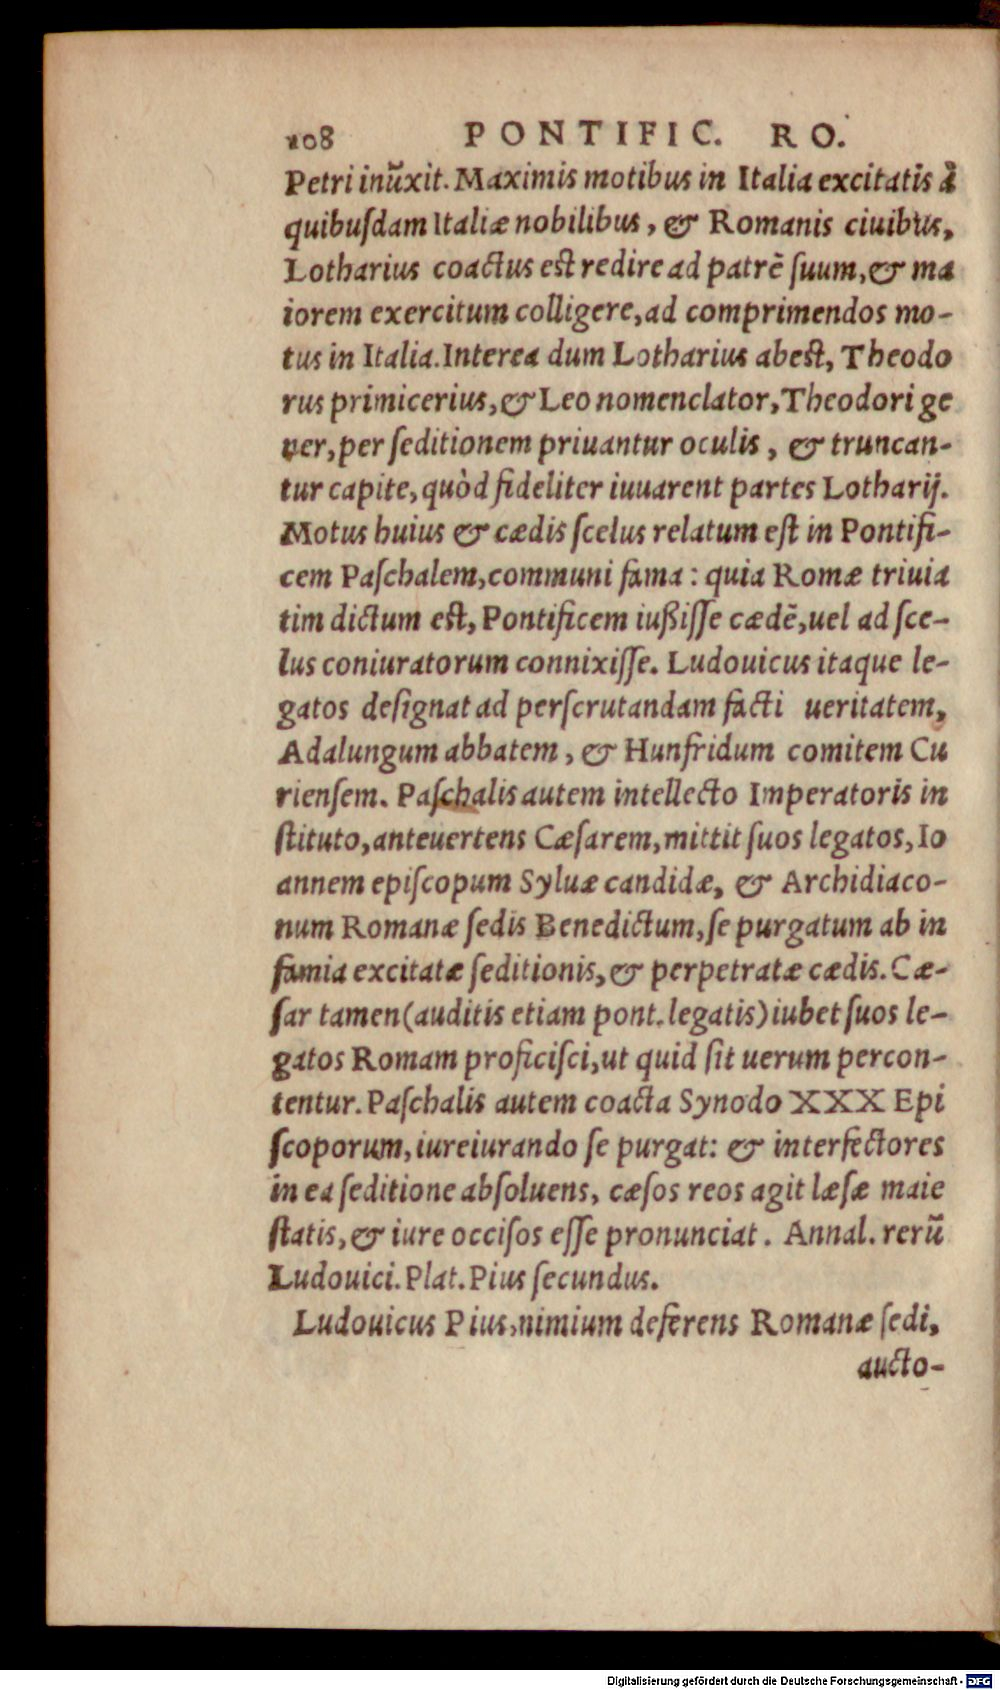 108 PONTIFIC. RO.
Petri inũxit. Maximis motibus in Italia excitatis à
quibuſdam Italiæ nobilibus, & Romanis ciuibus,
Lotharius coactus est redire ad patrẽ ſuum, & ma
iorem exercitum colligere, ad comprimendos mo-
tus in Italia. Interea dum Lotharius abest, Theodo
rus primicerius, & Leo nomenclator, Theodori ge
ner, per ſeditionem priuantur oculis, & truncan-
tur capite, quòd fideliter iuuarent partes Lotharij.
Motus huius & cædis ſcelus relatum eſt in Pontifi-
cem Paſchalem, communi fama: quia Romæ triuia
tim dictum est, Pontificem iußiſſe cædẽ, uel ad ſce-
lus coniuratorum connixiſſe. Ludouicus itaque le-
gatos deſignat ad perſcrutandam facti ueritatem,
Adalungum abbatem, & Hunfridum comitem Cu
rienſem. Paſchalis autem intellecto Imperatoris in
ſtituto, anteuertens Cæſarem, mittit ſuos legatos, Io
annem epiſcopum Syluæ candidæ, & Archidiaco-
num Romanæ ſedis Benedictum, ſe purgatum ab in
famia excitatæ ſeditionis, & perpetratæ cædis. Cæ-
ſar tamen (auditis etiam pont. legatis) iubet ſuos le-
gatos Romam proficiſci, ut quid ſit uerum percon-
tentur. Paſchalis autem coacta Synodo XXX Epi
ſcoporum, iureiurando ſe purgat: & interfectores
in ea ſeditione abſoluens, cæſos reos agit læſæ maie
ſtatis, & iure occiſos eſſe pronunciat. Annal. rerũ
Ludouici. Plat. Pius ſecundus.
Ludouicus Pius, nimium deferens Romanæ ſedi,
aucto-
Digitalisierung gefördert durch die Deutsche Forschungsgemeinschaft - DFG